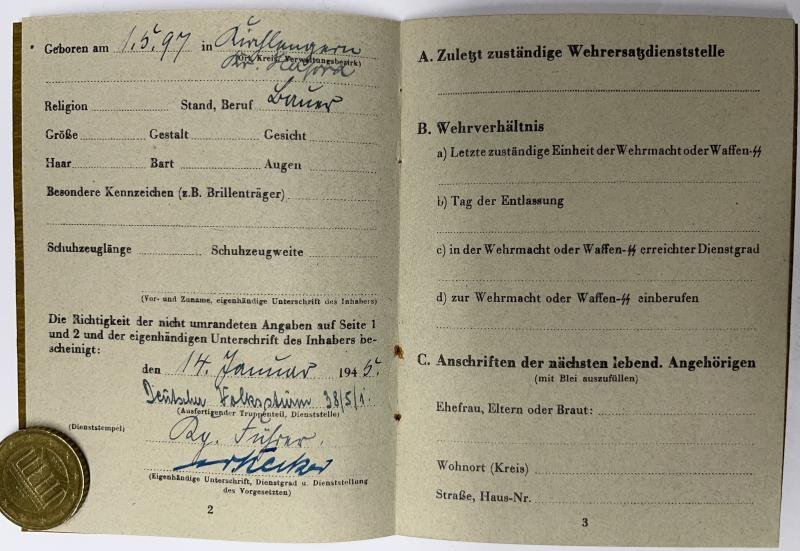 Geboren am 1.5.97 in Kirchlengern
(Ort, Kreis, Verwaltungsbezirk)
Kr. Herford
Religion Stand, Beruf Bauer
Größe Gestalt Gesicht
Haar Bart Augen
Besondere Kennzeichen (z.B. Brillenträger)
Schuhzeuglänge Schuhzeugweite
(Vor- und Zuname, eigenhändige Unterschrift des Inhabers)
Die Richtigkeit der nicht umrandeten Angaben auf Seite 1
und 2 und der eigenhändigen Unterschrift des Inhabers be-
scheinigt:
den 14. Januar 1945.
Deutscher Volkssturm 38/5/1.
(Ausfertigender Truppenteil, Dienststelle)
(Dienststempel)
Kp. Führer.
(Eigenhändige Unterschrift, Dienstgrad u. Dienststellung
des Vorgesetzten)
2
A. Zuletzt zuständige Wehrersatzdienststelle
B. Wehrverhältnis
a) Letzte zuständige Einheit der Wehrmacht oder Waffen-ᛋᛋ
b) Tag der Entlassung
c) in der Wehrmacht oder Waffen-ᛋᛋ erreichter Dienstgrad
d) zur Wehrmacht oder Waffen-ᛋᛋ einberufen
C. Anschriften der nächsten lebend. Angehörigen
(mit Blei auszufüllen)
Ehefrau, Eltern oder Braut:
Wohnort (Kreis)
Straße, Haus-Nr.
3